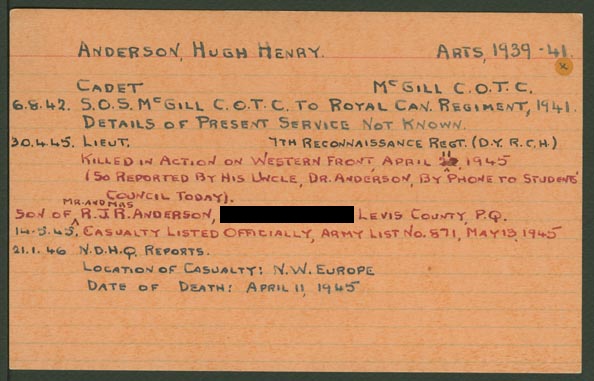 ANDERSON, HUGH HENRY. ARTS, 1939-41.
x
CADET McGILL C.O.T.C.
6.8.42. S.O.S. McGILL C.O.T.C. TO ROYAL CAN. REGIMENT, 1941.
DETAILS OF PRESENT SERVICE NOT KNOWN.
30.4.45. LIEUT. 7TH RECONNAISSANCE REGT. (D.Y.R.C.H)
KILLED IN ACTION ON WESTERN FRONT APRIL 11, 1945
(SO REPORTED BY HIS UNCLE, DR. ANDERSON, BY PHONE TO STUDENTS'
COUNCIL TODAY).
SON OF MR. AND MRS R.J.R. ANDERSON, LEVIS COUNTY, P.Q.
14-5.45, CASUALTY LISTED OFFICIALLY, ARMY LIST NO. 871, MAY 13, 1945
21.1.46 N.D.H.Q. REPORTS.
LOCATION OF CASUALTY: N.W. EUROPE
DATE OF DEATH: APRIL 11, 1945